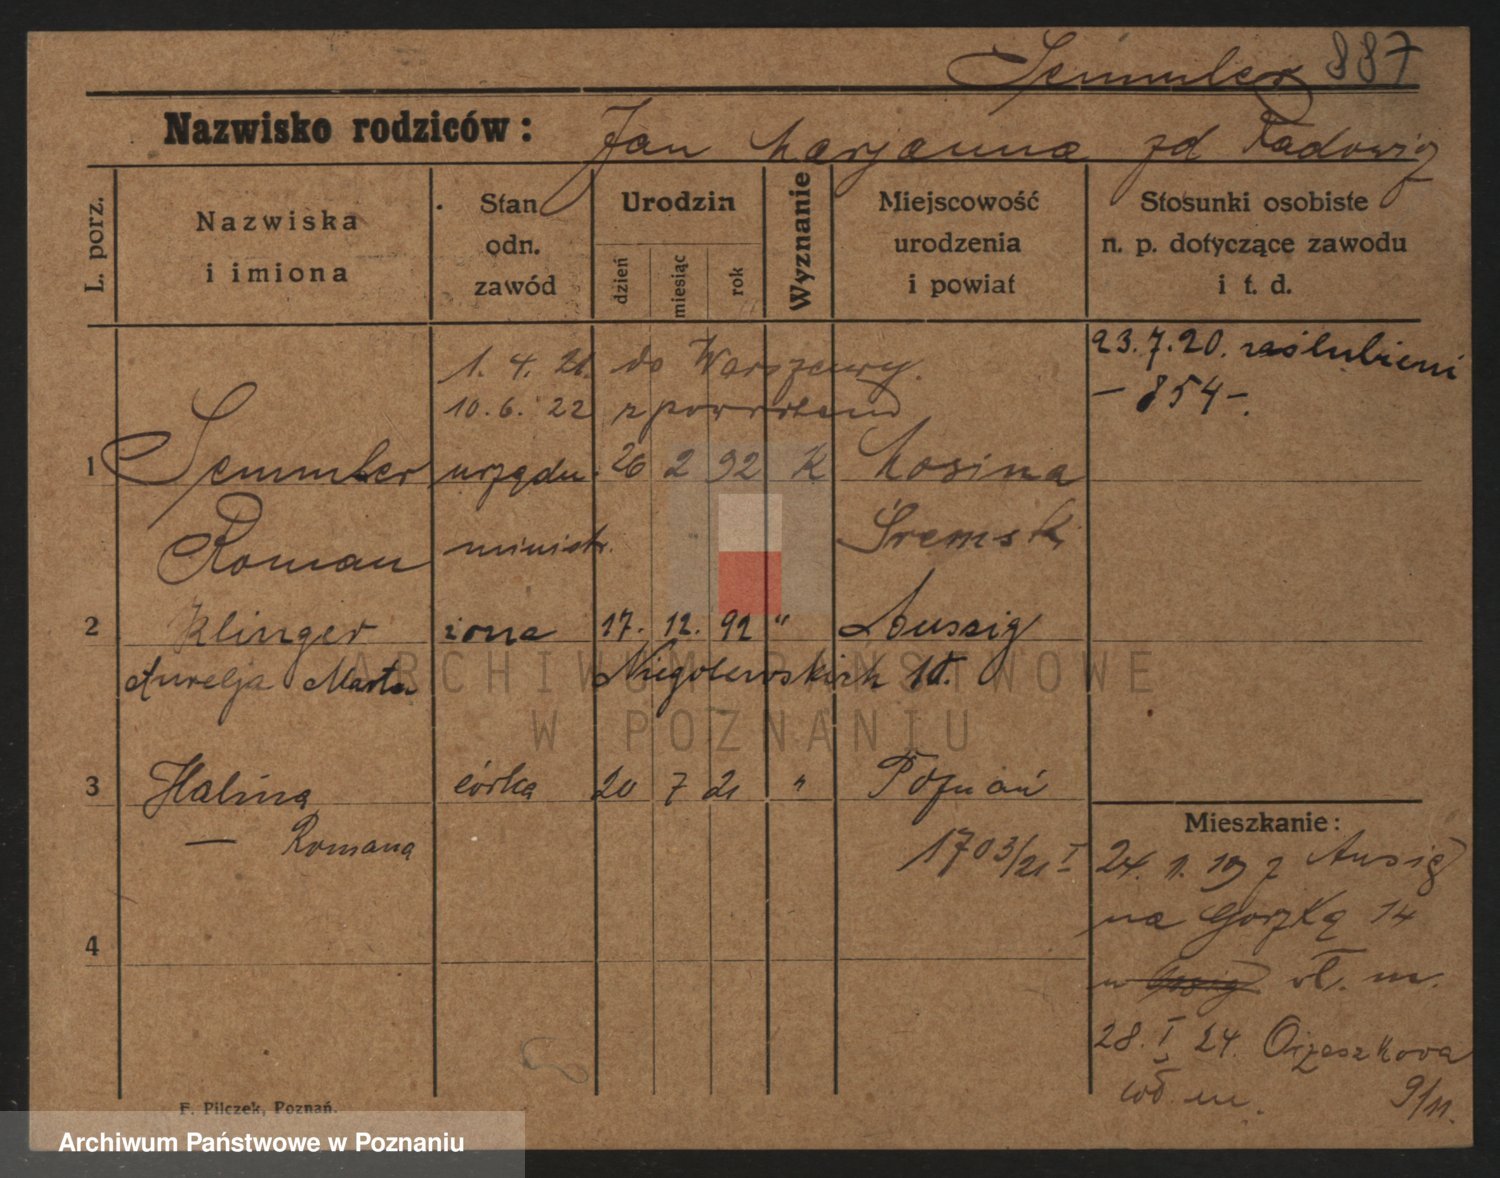 Semmler 887
Nazwisko rodziców: Jan Marjanna zd Radowicz
L. porz.
Nazwiska
i imiona
Stan
odn.
zawód
Urodzin
dzień
miesiąc
rok
Wyznanie
Miejscowość
urodzenia
i powiat
Stosunki osobiste
n. p. dotyczące zawodu
i t. d.
1. 4. 21. do Warszawy.
10. 6. 22 z powrotem
23. 7. 20. zaślubieni
— 854 —.
1 Semmler urzędn. 26 2 92 K Mosina
Roman ministr. Śremski
2 Klinger żona 17. 12. 92 " Aussig
Aurelja Marta Niegolewskich 10.
3 Halina córka 20 7 21 " Poznań
— Romana 1703/21 I
4
Mieszkanie:
24. 11. 19 z Ausig
na Górzką 14
w wł. m.
28. I 24. Orzeszkowa
wł. m. 9/11.
F. Pilczek, Poznań.
ARCHIWUM PAŃSTWOWE
W POZNANIU
Archiwum Państwowe w Poznaniu